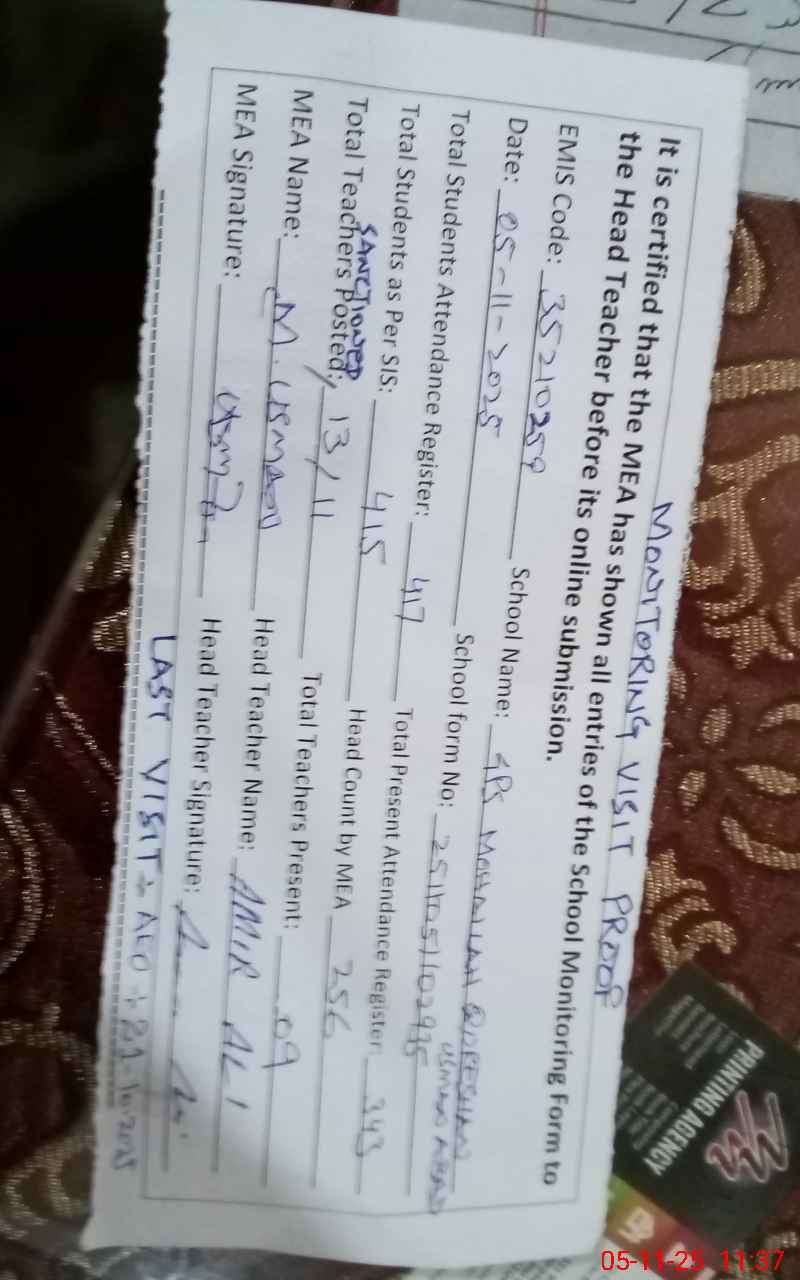 MONITORING VISIT PROOF
It is certified that the MEA has shown all entries of the School Monitoring Form to
the Head Teacher before its online submission.
EMIS Code: 35210259 School Name: GPS MOHALLAH QURESHIAN
USMAN ABAD
Date: 05-11-2025 School form No: 2511051102935
Total Students Attendance Register: 417 Total Present Attendance Register: 343
Total Students as Per SIS: 415 Head Count by MEA 256
SANCTIONED
Total Teachers Posted: 13/11 Total Teachers Present: 09
MEA Name: M. USMAN Head Teacher Name: AMIR ALI
MEA Signature: Head Teacher Signature:
LAST VISIT ÷ AEO ÷
PRINTING AGENCY
05-11-25 11:37